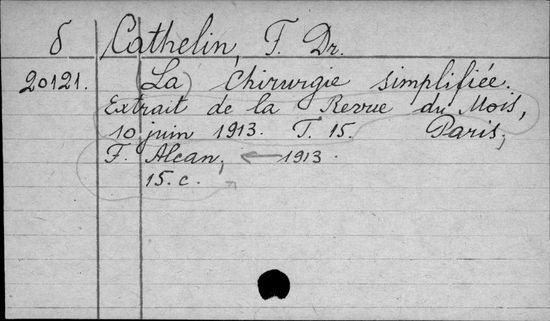 δ Cathelin, F. Dr.
20121. (La) Chirurgie simplifiée.
Extrait de la Revue du Mois,
10 juin 1913. T. 15. Paris,
F. Alcan, ← 1913.
15. c.